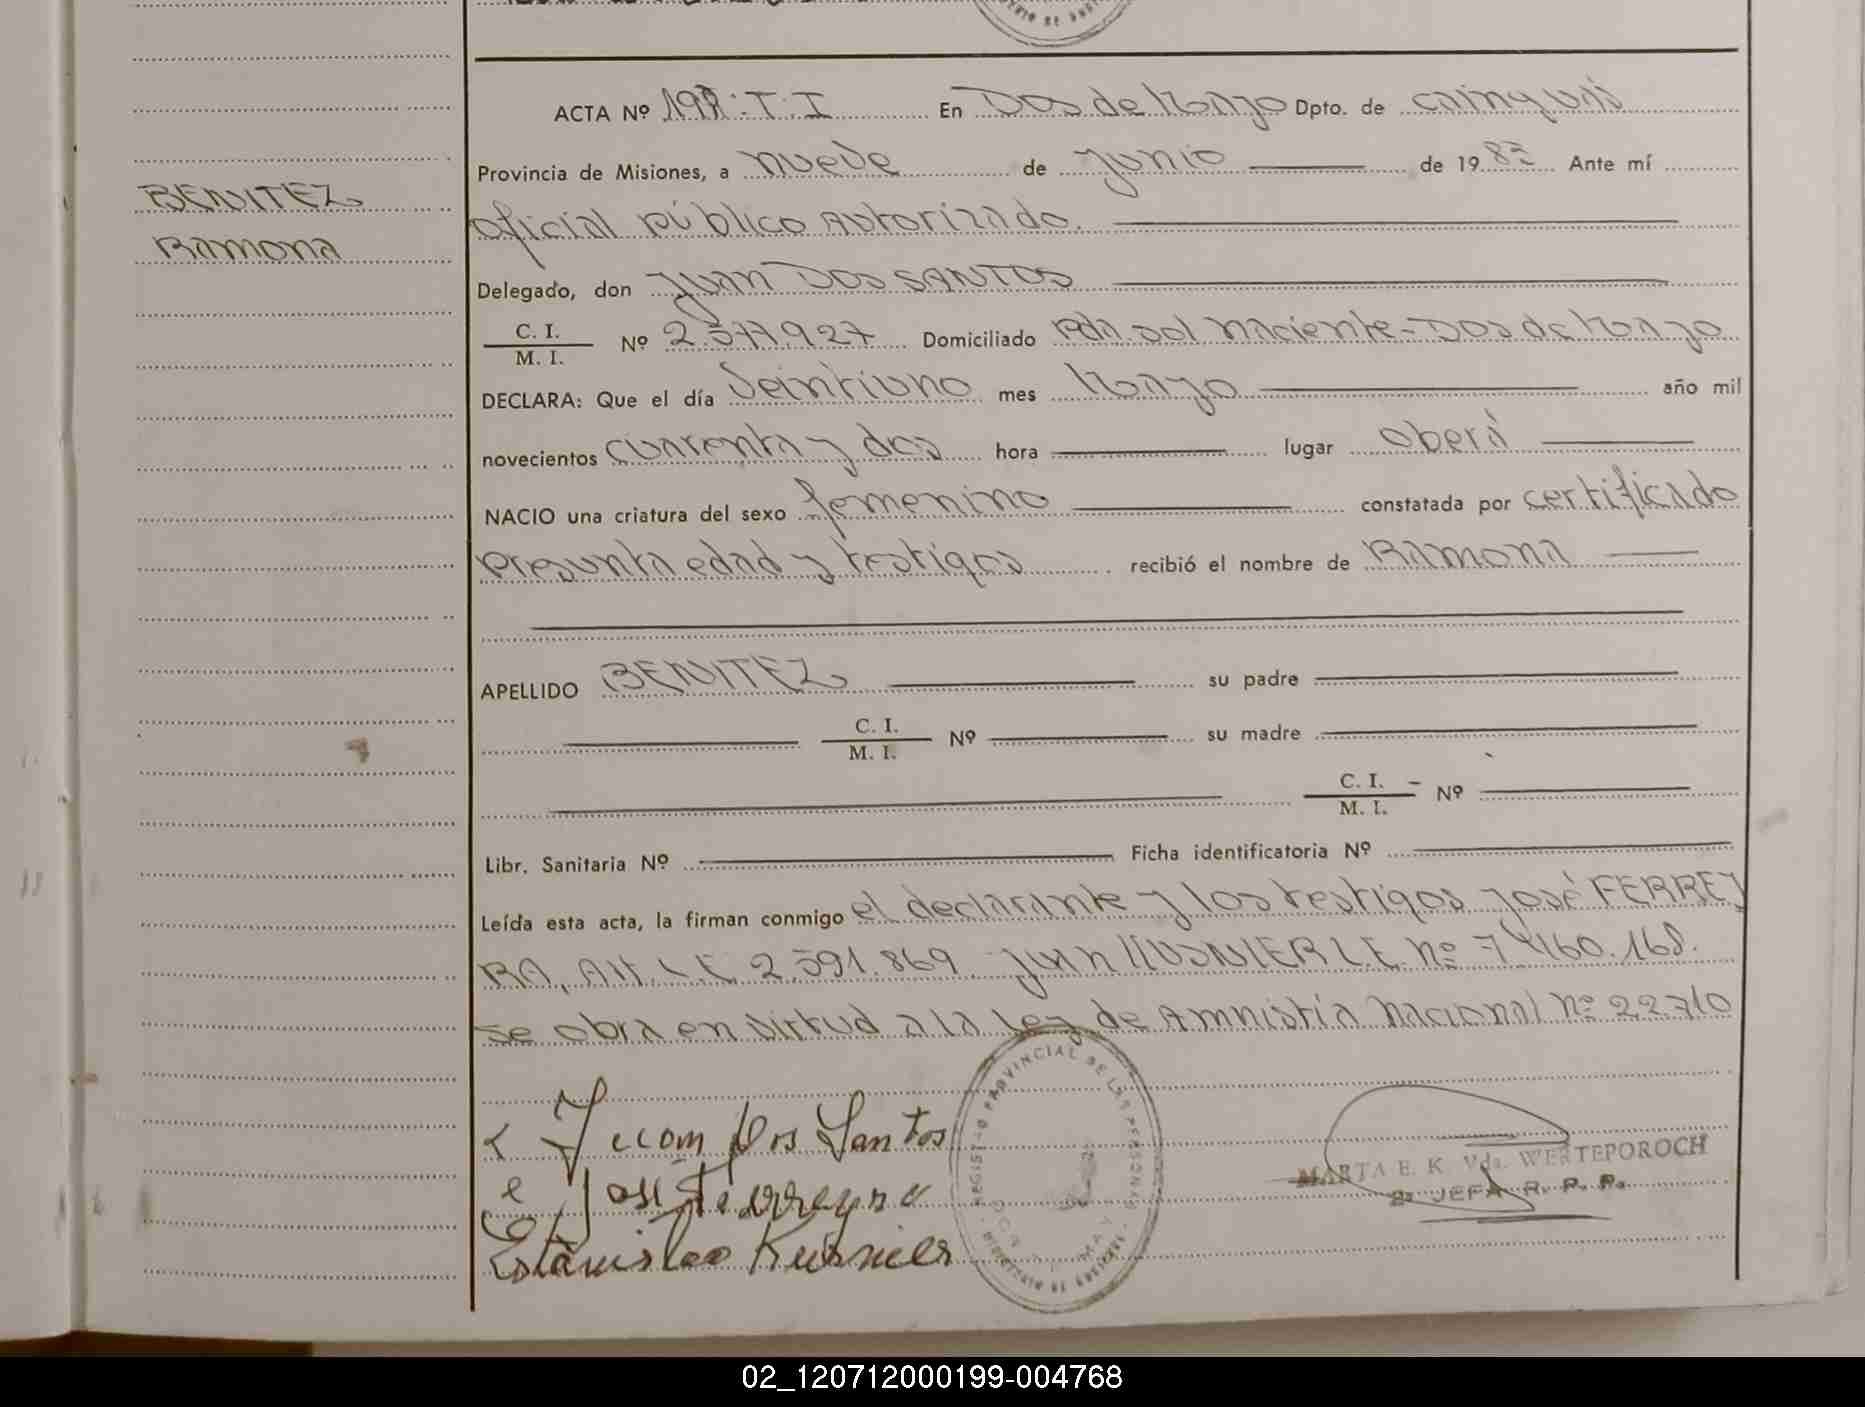 BENITEZ
RAMONA
ACTA Nº 197: T: I En Dos de Mayo Dpto. de Cainguás
Provincia de Misiones, a nueve de Junio de 1983 Ante mí
oficial público Autorizado.
Delegado, don Juan DOS SANTOS
C. I.
M. I. Nº 2.577.927 Domiciliado Pda. Sol Naciente - Dos de Mayo
DECLARA: Que el día veintiuno mes Mayo año mil
novecientos cuarenta y dos hora lugar Oberá
NACIO una criatura del sexo femenino constatada por certificado
presunta edad y testigos recibió el nombre de RAMONA
APELLIDO BENITEZ su padre
C. I.
M. I. Nº su madre
C. I.
M. I. Nº
Libr. Sanitaria Nº Ficha identificatoria Nº
Leída esta acta, la firman conmigo el declarante y los testigos José FERREY
RA, 2.591.869. Juan KUSNIER L.E. nº 7.460.168.
se obra en virtud a la Ley de Amnistía Nacional nº 22710
Juan Dos Santos
José Ferreyra
Estanislao Kusnier
REGISTRO PROVINCIAL DE LAS PERSONAS
MARTA E. K. Vda. WERTEPOROCH
2a JEFA R. P. P.
02_120712000199-004768